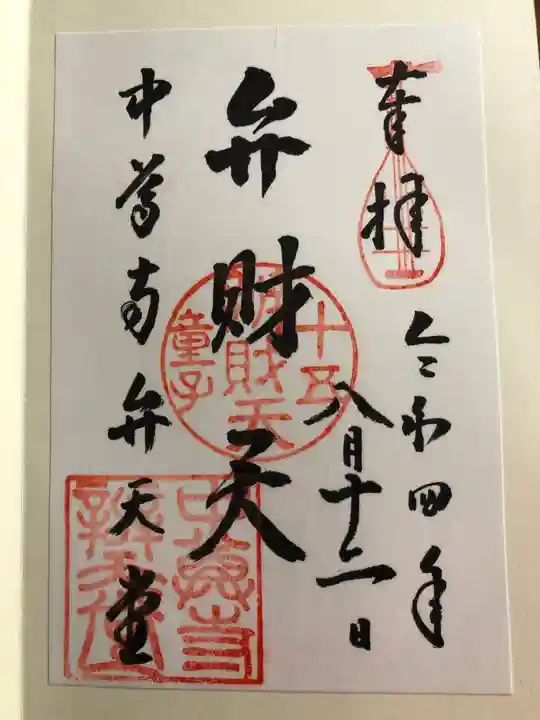 奉拝
令和四年
八月十二日
弁財天
十五
辨財天
童子
中尊寺弁天堂
中尊寺
辨天堂